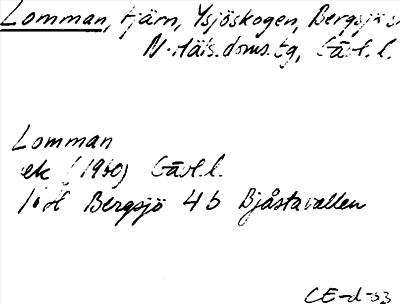 Lomman, tjärn, Ysjöskogen, Bergsjö s
N. Häls. doms. tg, Gävl. l.
Lomman
ek (1960) Gävl. l.
Bergsjö 4b Bjåstavallen
CE-d-53